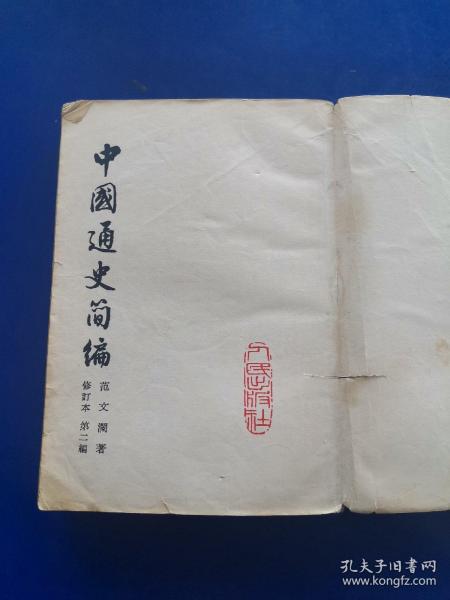 中國通史简编
范文瀾著
修訂本 第二編
人民出版社
孔夫子旧书网
www.kongfz.com